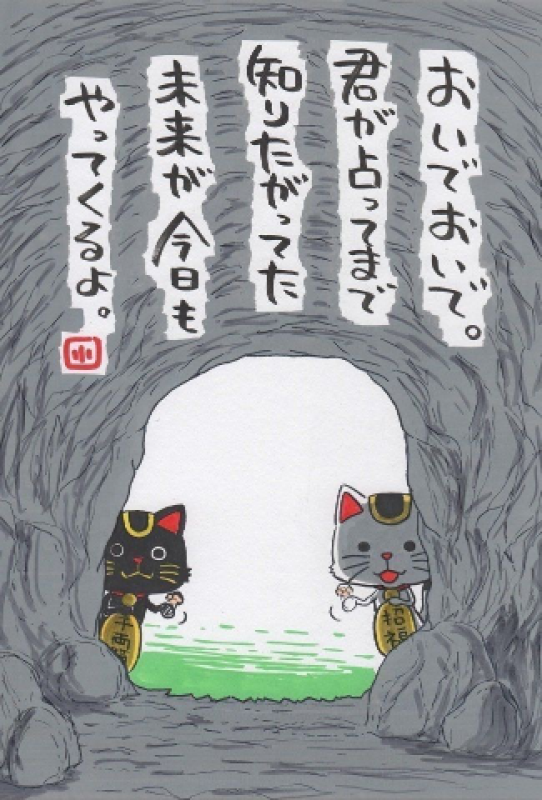 おいでおいで。
君が占ってまで
知りたがってた
未来が今日も
やってくるよ。
小
千両
招福